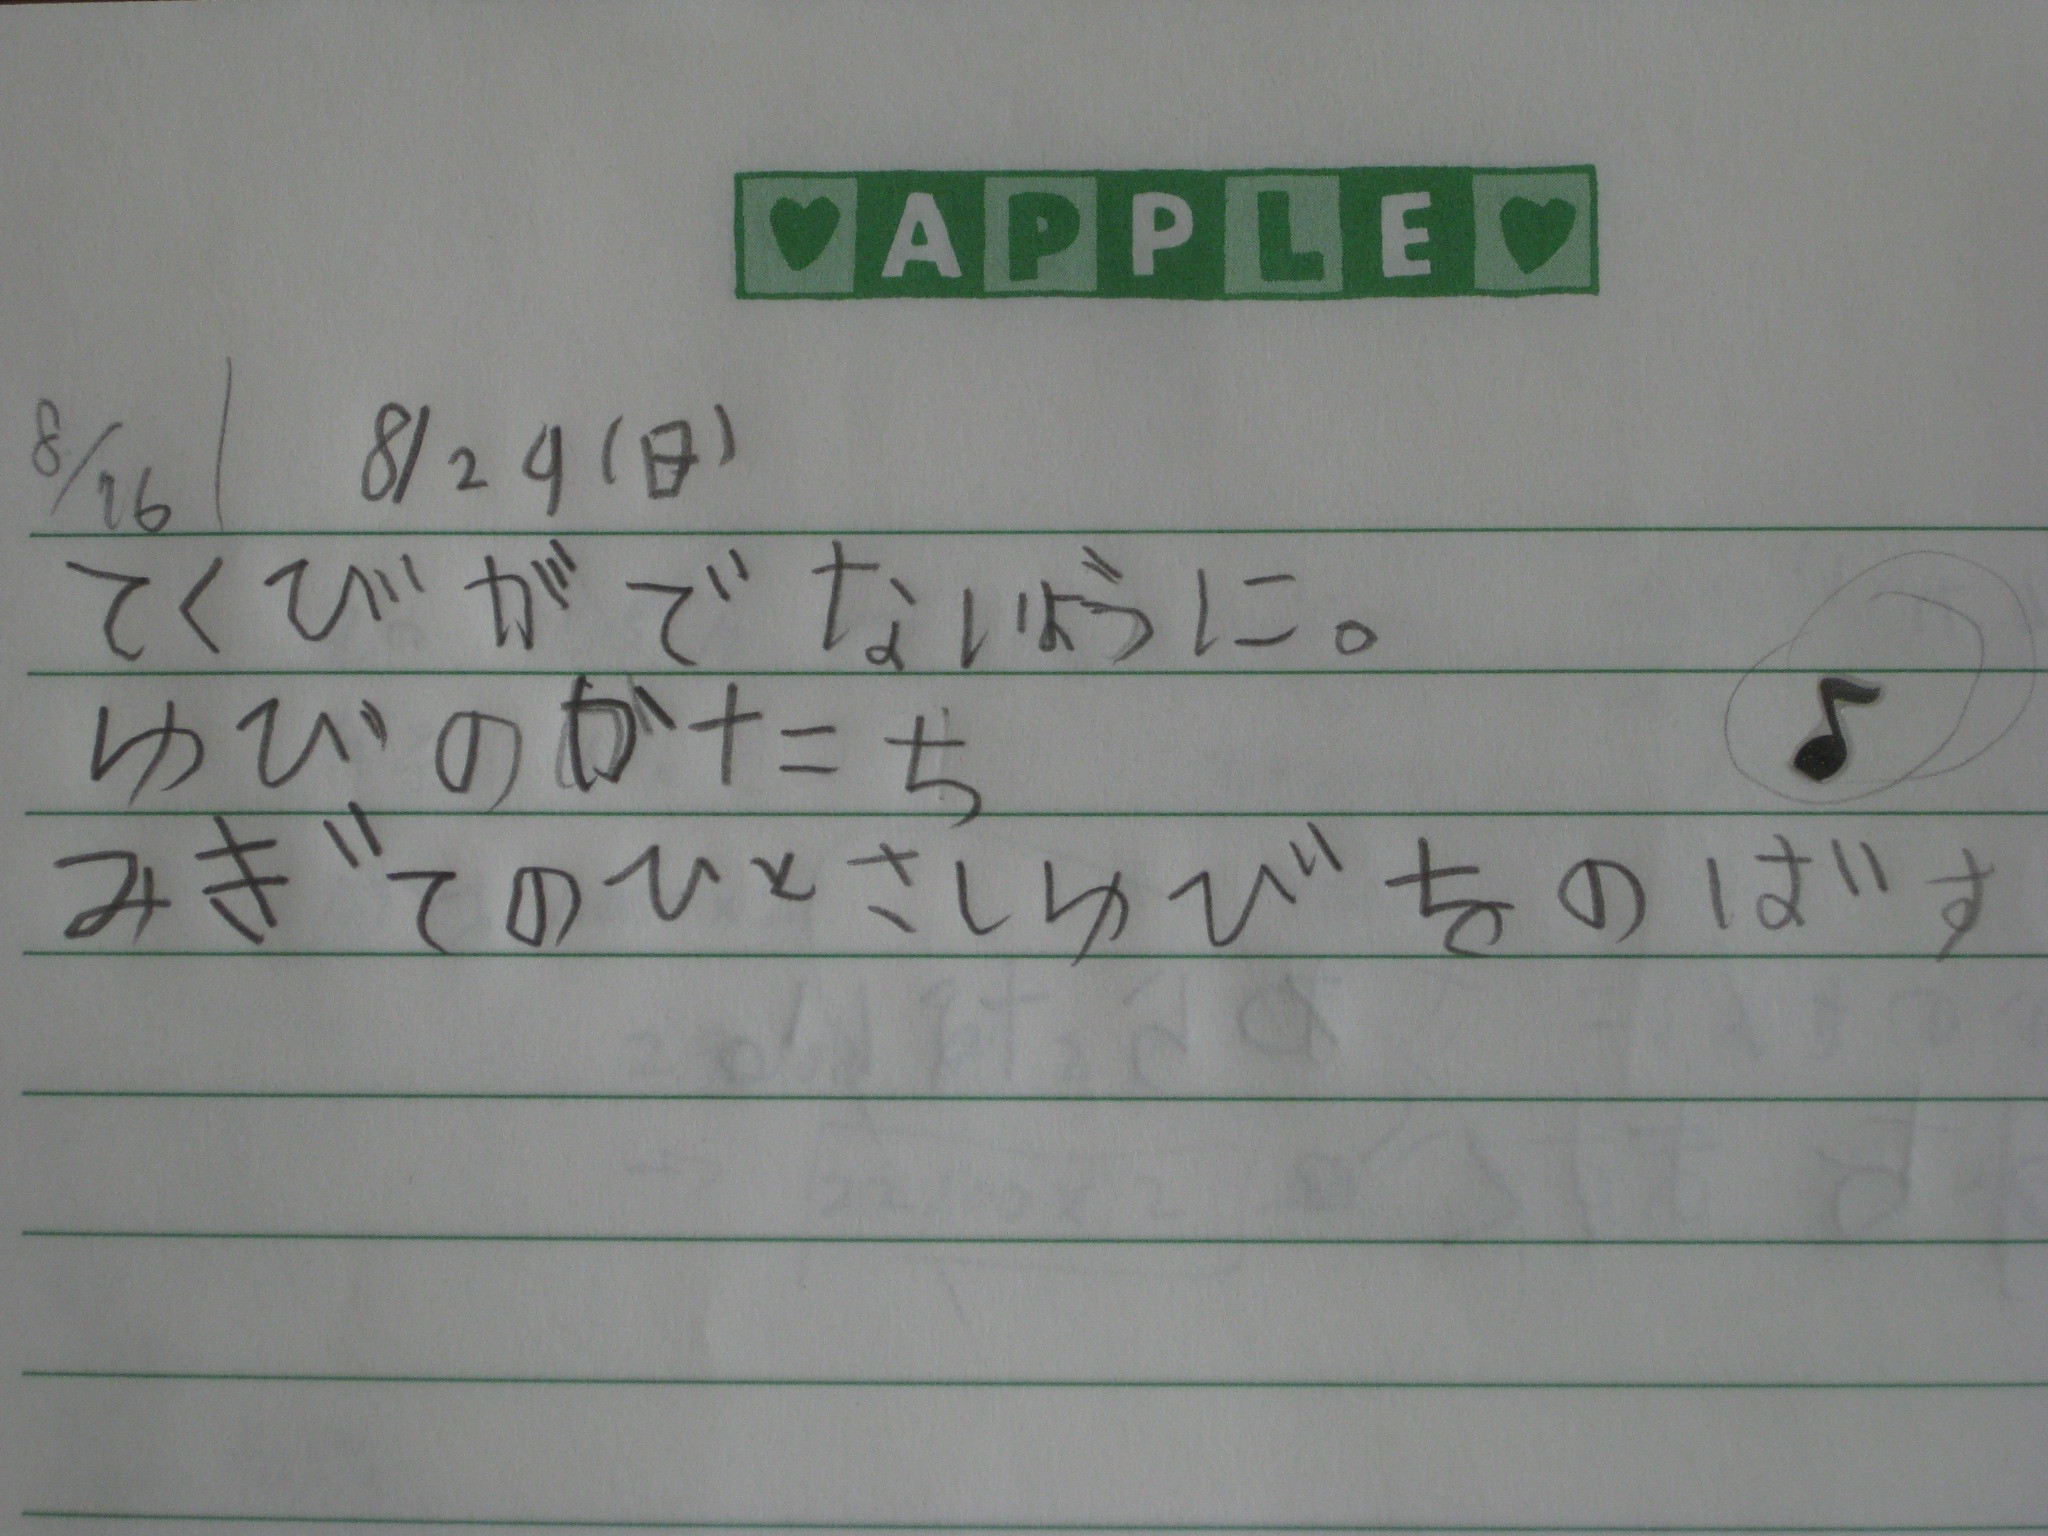 APPLE
8/16 8/29(日)
てくびがでないように。
ゆびのかたち
みぎてのひとさしゆびをのばす